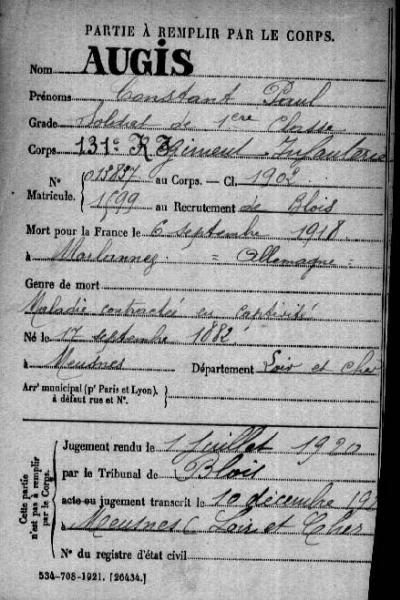 PARTIE À REMPLIR PAR LE CORPS.
Nom AUGIS
Prénoms Constant Paul
Grade Soldat de 1ère Classe
Corps 131e Régiment Infanterie
N° 013837 au Corps. — Cl. 1902
Matricule. 1699 au Recrutement de Blois
Mort pour la France le 6 septembre 1918
à = Allemagne =
Genre de mort
Maladie contractée en captivité
Né le 17 septembre 1882
à Meusnes Département Loir et Cher
Arrt municipal (pr Paris et Lyon),
à défaut rue et N°.
Cette partie
n'est pas à remplir
par le Corps.
Jugement rendu le 1 Juillet 1920
par le Tribunal de Blois
acte ou jugement transcrit le 10 décembre 19
à Meusnes (Loir et Cher
N° du registre d'état civil
534-708-1921. [26434.]